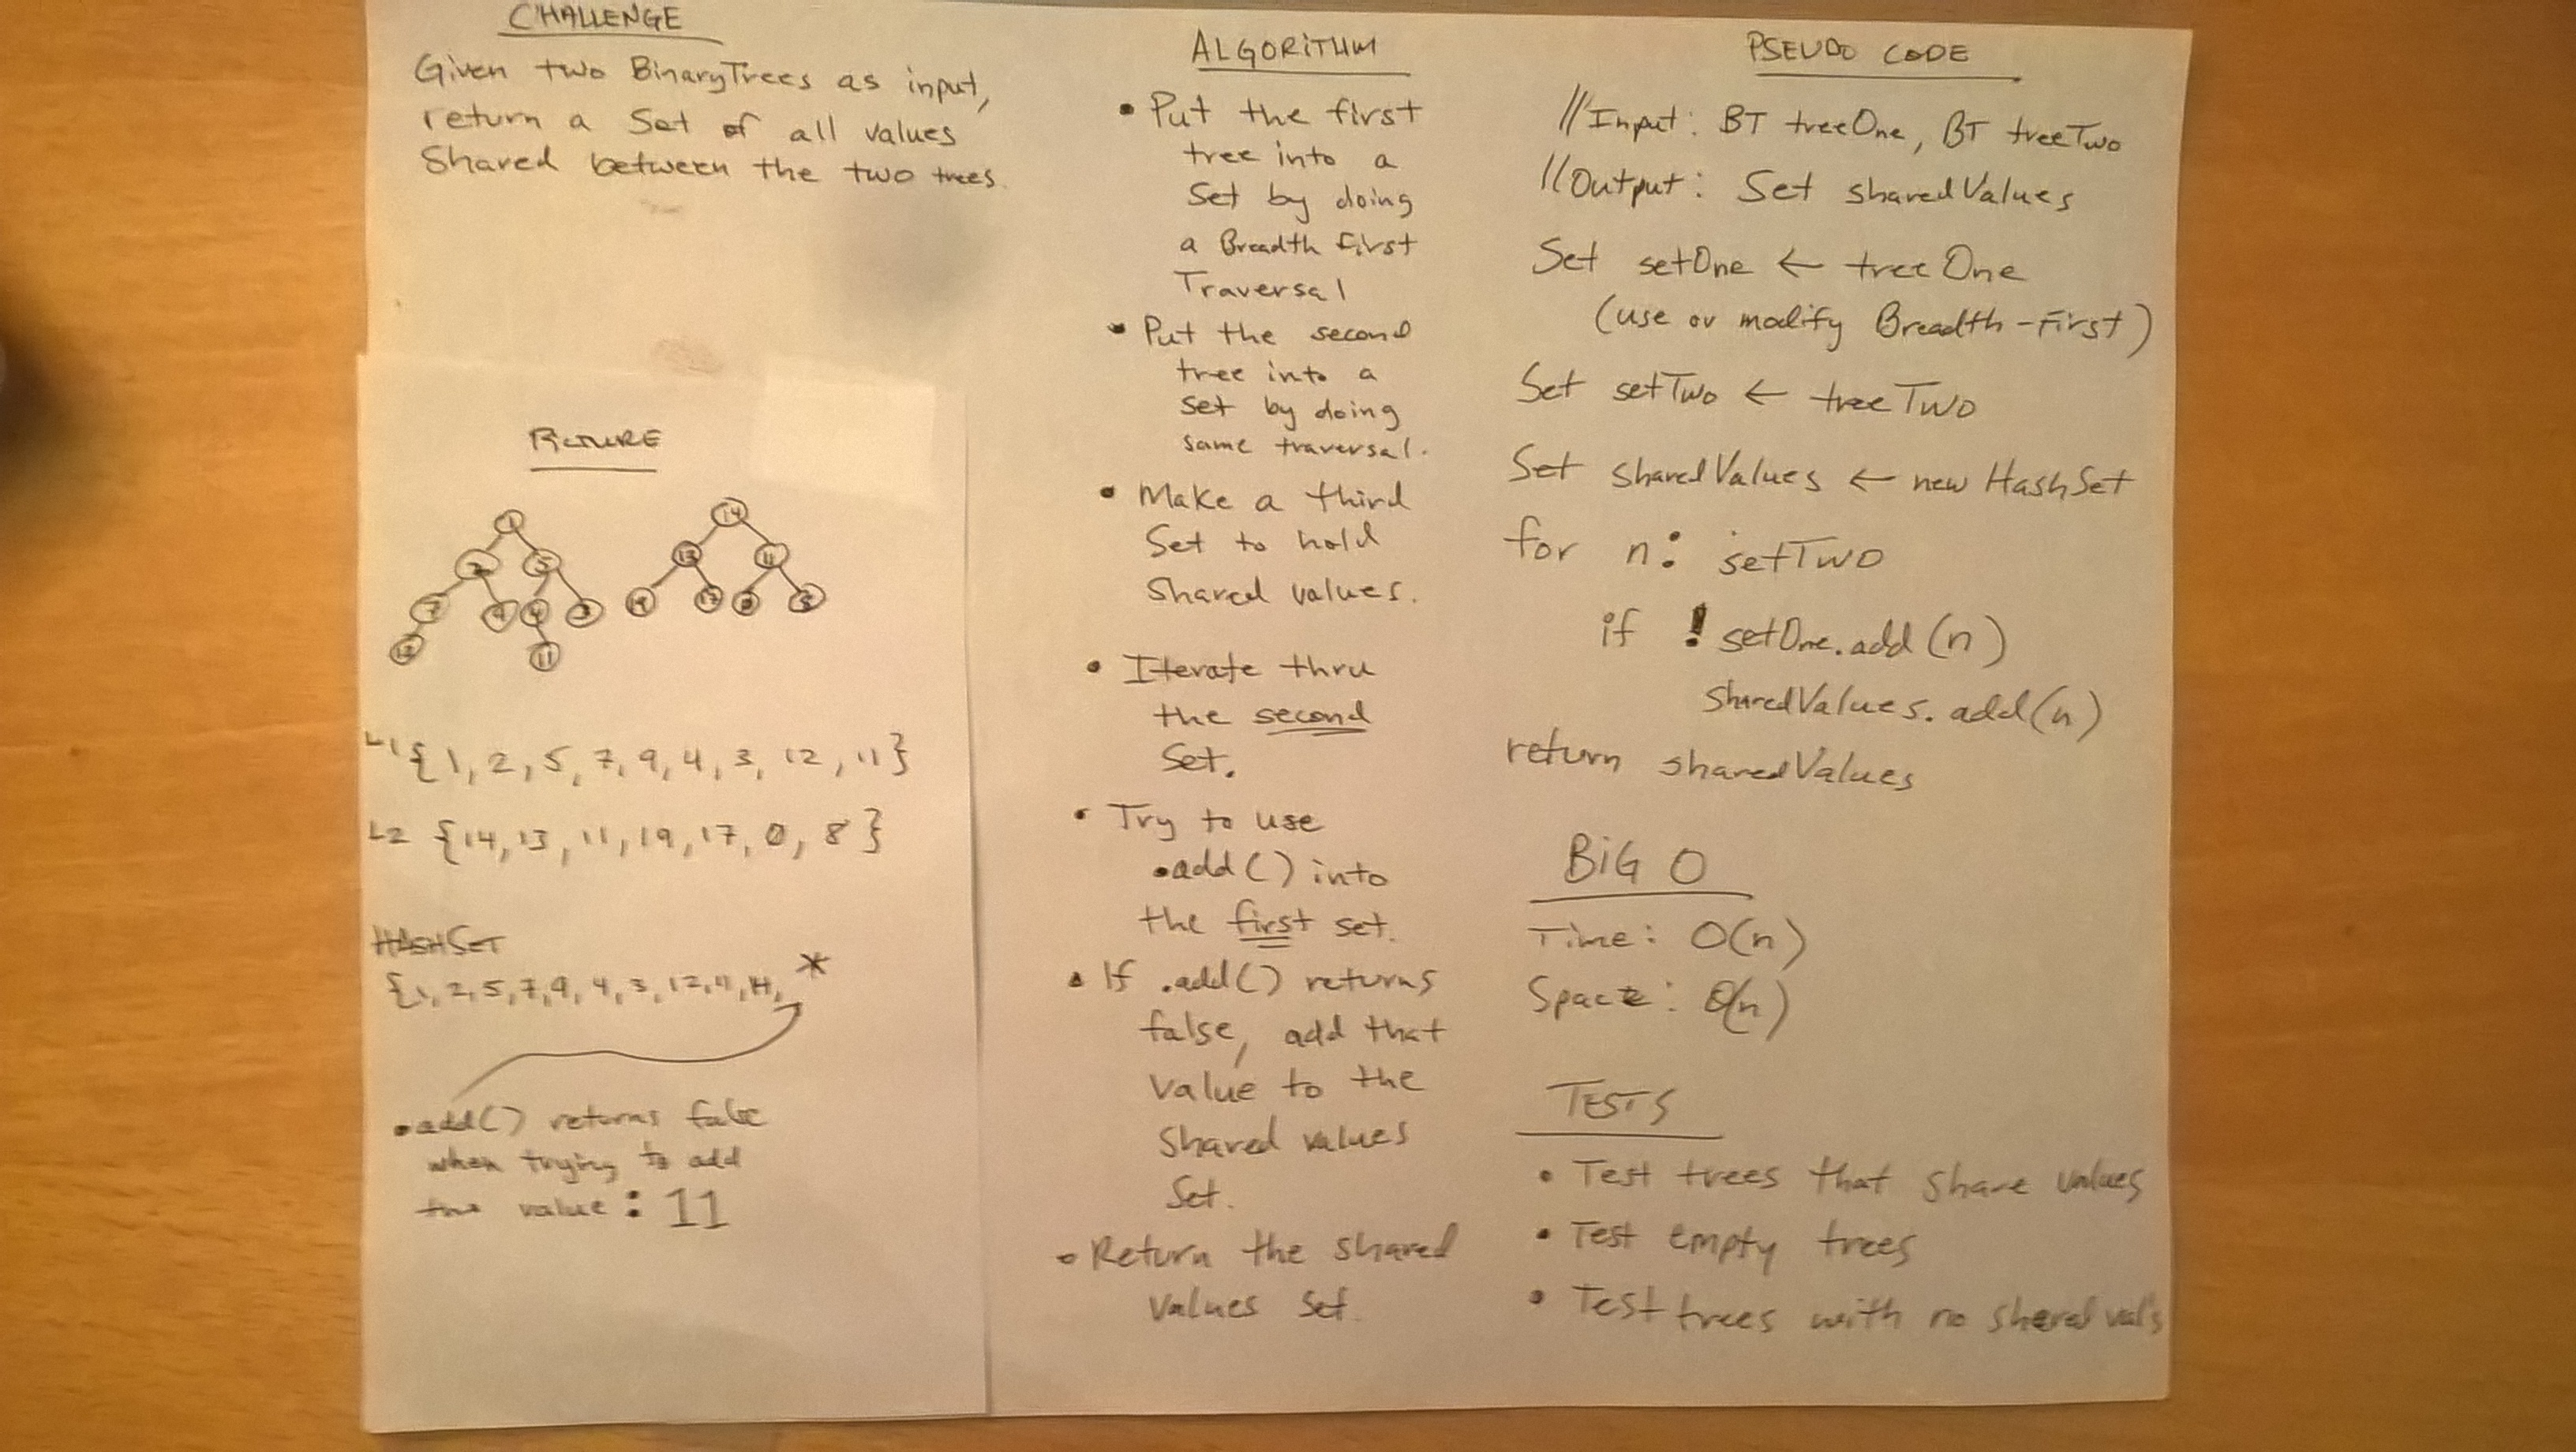 CHALLENGE
Given two BinaryTrees as input,
return a Set of all values
Shared between the two trees.
PICTURE
1
2 5
7 9 4 3
12 11
14
13 11
19 17 0 8
L1 {1, 2, 5, 7, 9, 4, 3, 12, 11}
L2 {14, 13, 11, 19, 17, 0, 8}
HASHSET
{1, 2, 5, 7, 9, 4, 3, 12, 11, 14, *
.add() returns false
when trying to add
the value: 11
ALGORITHM
• Put the first
tree into a
Set by doing
a Breadth First
Traversal
• Put the second
tree into a
set by doing
same traversal.
• Make a third
Set to hold
Shared values.
• Iterate thru
the second
Set.
• Try to use
.add() into
the first set.
• If .add() returns
false, add that
value to the
Shared values
Set.
• Return the shared
values set.
PSEUDO CODE
//Input: BT treeOne, BT treeTwo
//Output: Set sharedValues
Set setOne ← treeOne
(use or modify Breadth-First)
Set setTwo ← treeTwo
Set sharedValues ← new HashSet
for n: setTwo
if !setOne.add(n)
sharedValues.add(n)
return sharedValues
BIG O
Time: O(n)
Space: O(n)
TESTS
• Test trees that share values
• Test empty trees
• Test trees with no shared val's